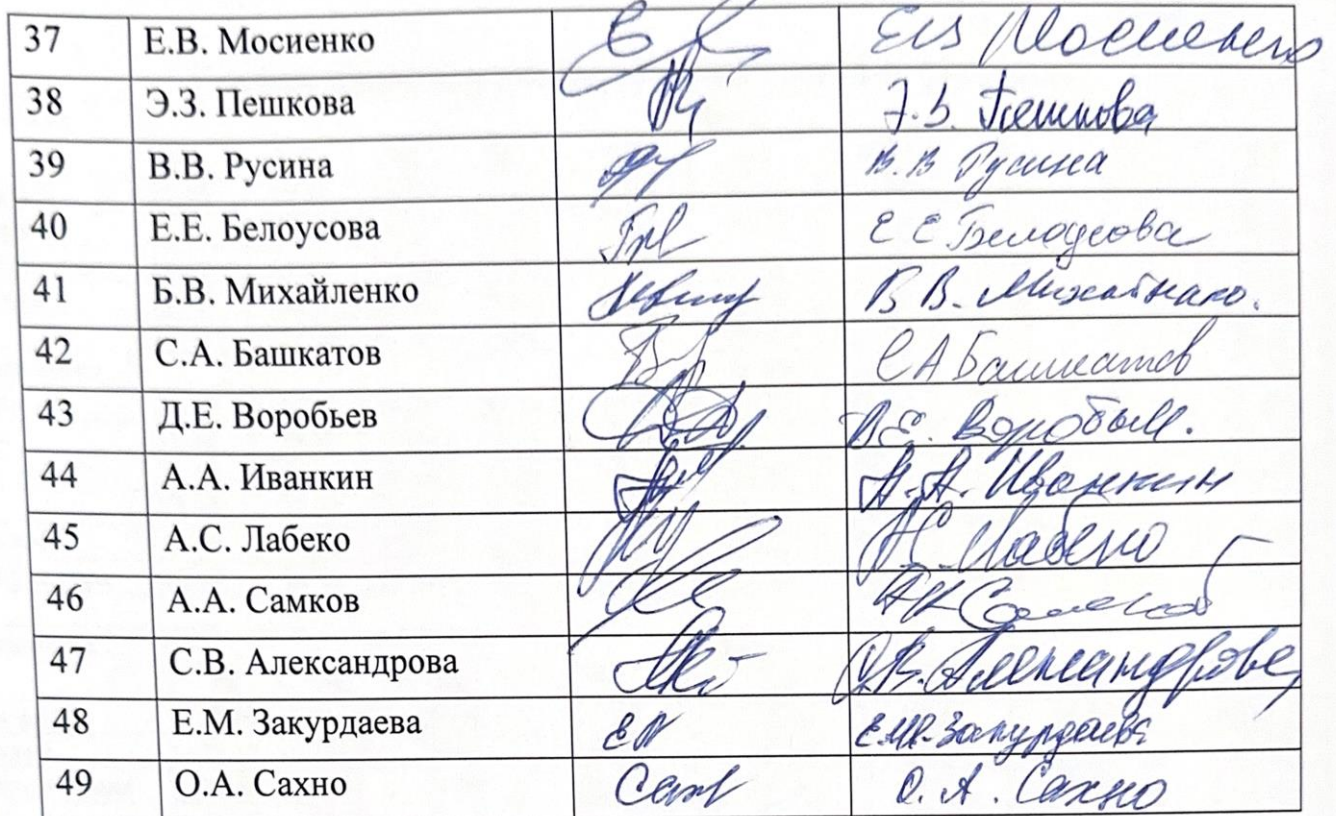 37 Е.В. Мосиенко Е.В. Мосиенко
38 Э.З. Пешкова Э.З. Пешкова
39 В.В. Русина В.В Русина
40 Е.Е. Белоусова Е Е Белоусова
41 Б.В. Михайленко Б В. 
42 С.А. Башкатов С А Башкатов
43 Д.Е. Воробьев Д.Е. Воробьев.
44 А.А. Иванкин А.А. Иванкин
45 А.С. Лабеко А.С. Лабеко
46 А.А. Самков Самков
47 С.В. Александрова С.В. Александрова
48 Е.М. Закурдаева Е.М. Закурдаева
49 О.А. Сахно Сахн О.А. Сахно